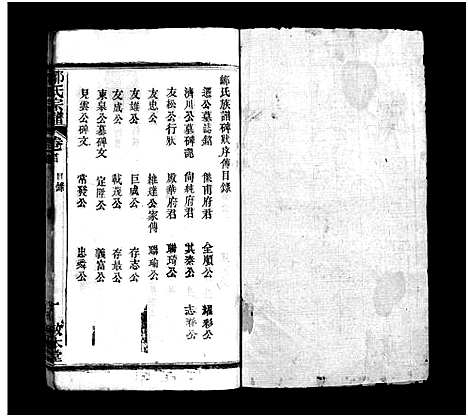 鄒氏族譜碑狀序傳目錄
遷公墓誌銘 俊甫府君 全順公 耀彩公
濟川公墓碑誌 尚純府君 其泰公 志彩公
友松公行狀 殿華府君 聯琦公
友忠公 維達公家傳 聯瑜公
友雄公 巨威公 存志公
友成公 戟茂公 存最公
東泉公墓碑文 定隆公 義富公
見雲公碑文 常發公 忠舜公
氏宗譜 卷首 目錄 一 敘本堂